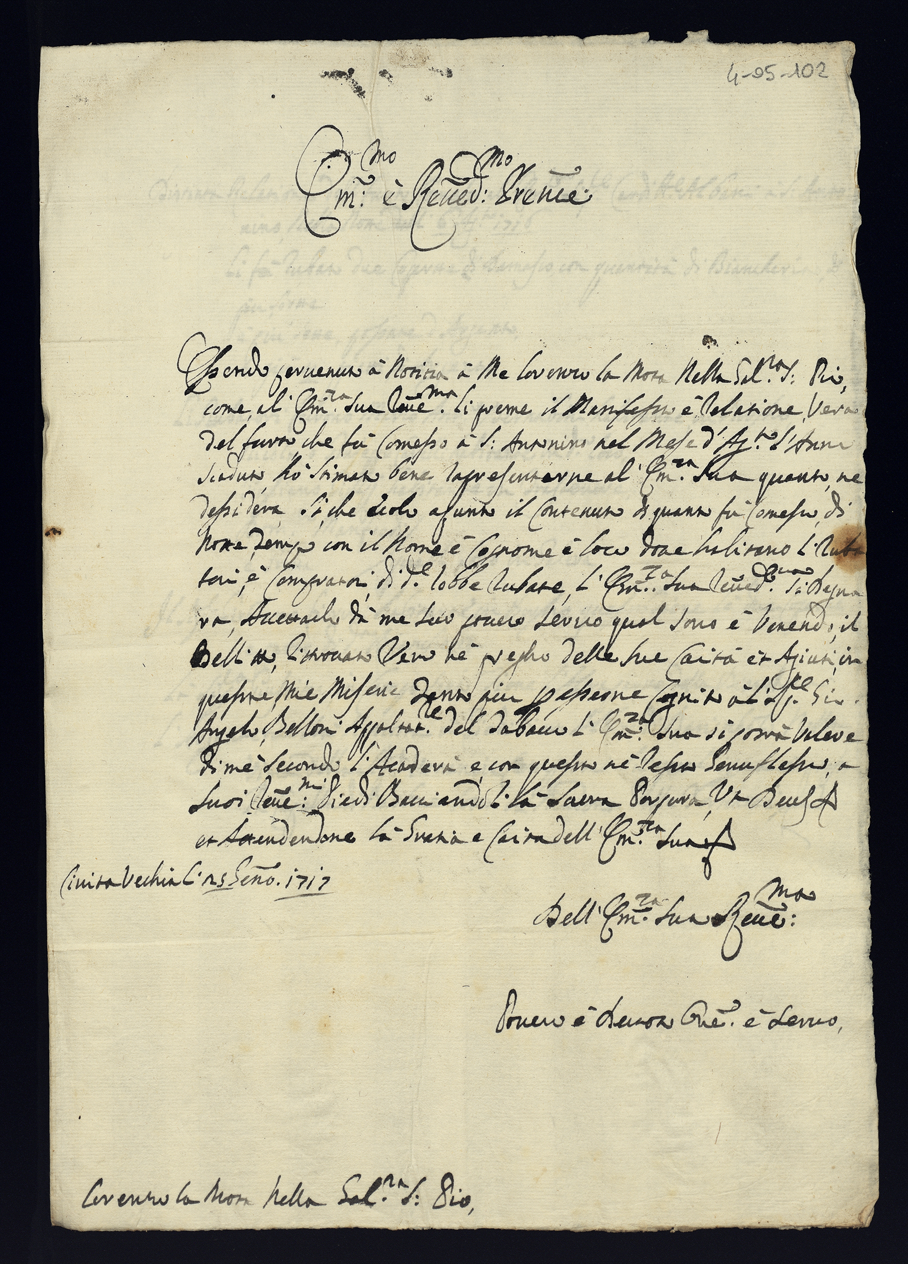 4-05-102
Em:mo è Reued:mo Prencê:
Essendo peruenuto à Notitia à Me Lorenzo la Mora Nella Gal.ra S: Pio,
come, al' Em.za Sua Reue.ma li preme il Manifesto è Relatione, Vera
del furto, che fù Comesso à S: Antonino nel Mese d'Ag.to l'Anno
Scaduto hò Stimato bene rapresentarne al' Em.za Sua quanto, ne
dessidéra, Si, che Ecole agunto il Contenuto di quanto fù Comesso, di
Notte Tempo con il Nome è Cognome è loco doue habitano li Ruba
tori, è Compratori, di d.e robbe rubate, l'Em.za Sua Reued.ma Si Degna
ra, Accettarlo dà me Suo pouero Seruo qual Sono è Venendo, il
Dellitto, ritrouato Vero né prego delle Sue Carità et Agiuti, in
queste Mie Miserie Tanto più persone Cognite à l'
Angelo, Belloni Apaltat.re del Tabacco l'Em.za Sua si potrà Valere
di mè Secondo l'Acaderà e con questo né resto Genuflesso, a
Suoi Reue.mi: Piedi Bacciandoli là Sacra Porpora, Vt Deus
et Attendendone là Gratia e Carità dell' Em.za Sua
Ciuita Vechia li 25 Genô. 1717
Dell' Em.za Sua Reuê:ma
Pouero è Deuoto è Seruo,
Lorenzo la Mora Nella Gal.ra S: Pio,